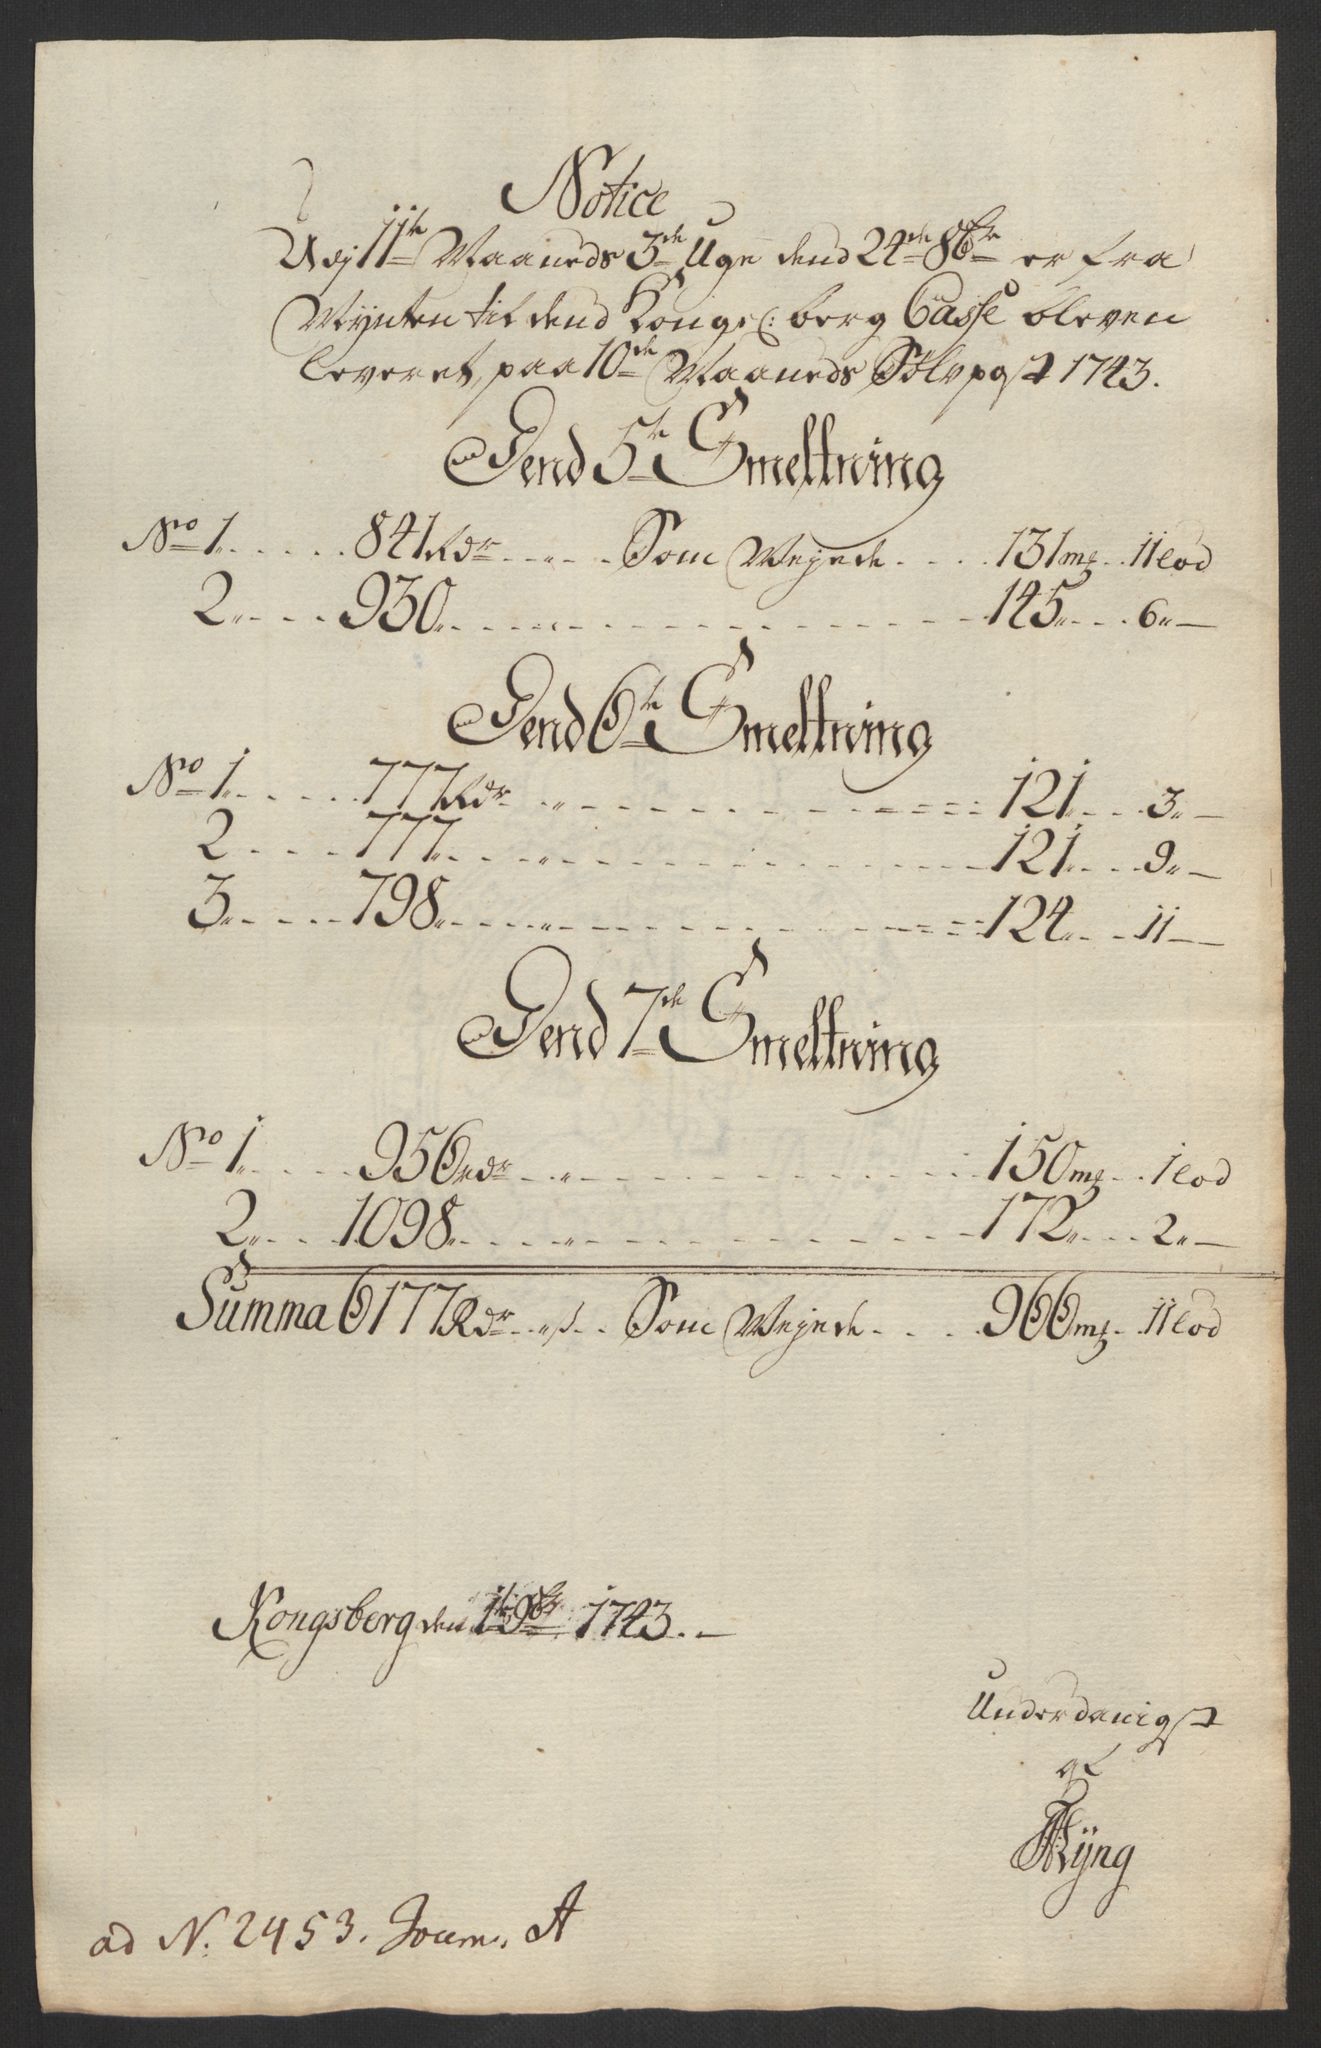 Notice
Udj 11te Maaneds 3de Uge dend 24de 8br er fra
Mynten til dend Kongs: berg Casse bleven
leveret, paa 10de Maaneds Sølvpost 1743.
Dend 5te Smeltning
No 1. 841 Rdr Som Wejede 131 mg 11 lod
2. 930. 145. 6. —
Dend 6te Smeltning
No 1. 777 Rdr 121. 3. —
2 777. 121. 9. —
3. 798. 124. 11 —
Dend 7de Smeltning
No 1. 956 rdr 150 mg 1 lod
2. 1098. 172. 2. —
Summa 6177 Rdr Som Wejede 966 mg 11 lod
Kongsberg den 1te 9br 1743. —
Underdanigst
af
Rÿng
ad N. 2453. Journ. A